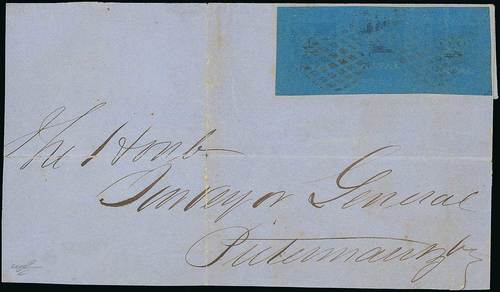 The Honb
Surveyor General
Pietermauritzbg